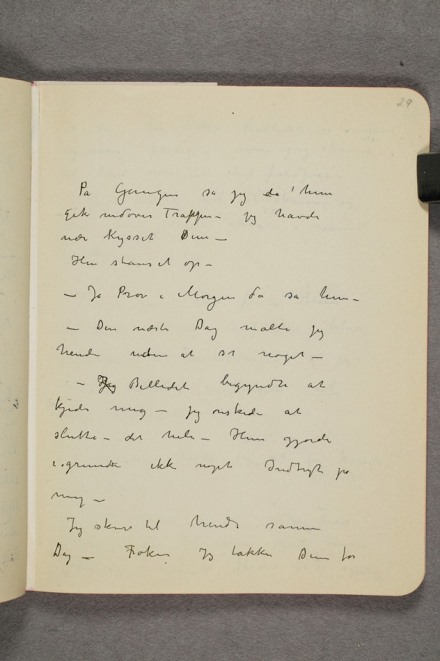 29
På Gangen sa jeg da hun
gik nedover Trappen – jeg havde
nær kysset Dem –
Hun stanset op –
– Ja Prøv i Morgen da sa hun –
– Den næste Dag malte jeg
hende uden at si noget –
– Billedet begyndte at
kjede mig – jeg ønskede at
slutte – det hele – Hun gjorde
i grunden ikke noget Indtryk på
mig –
Jeg skrev til hende samme
Dag – Frøken Jeg takker Dem for